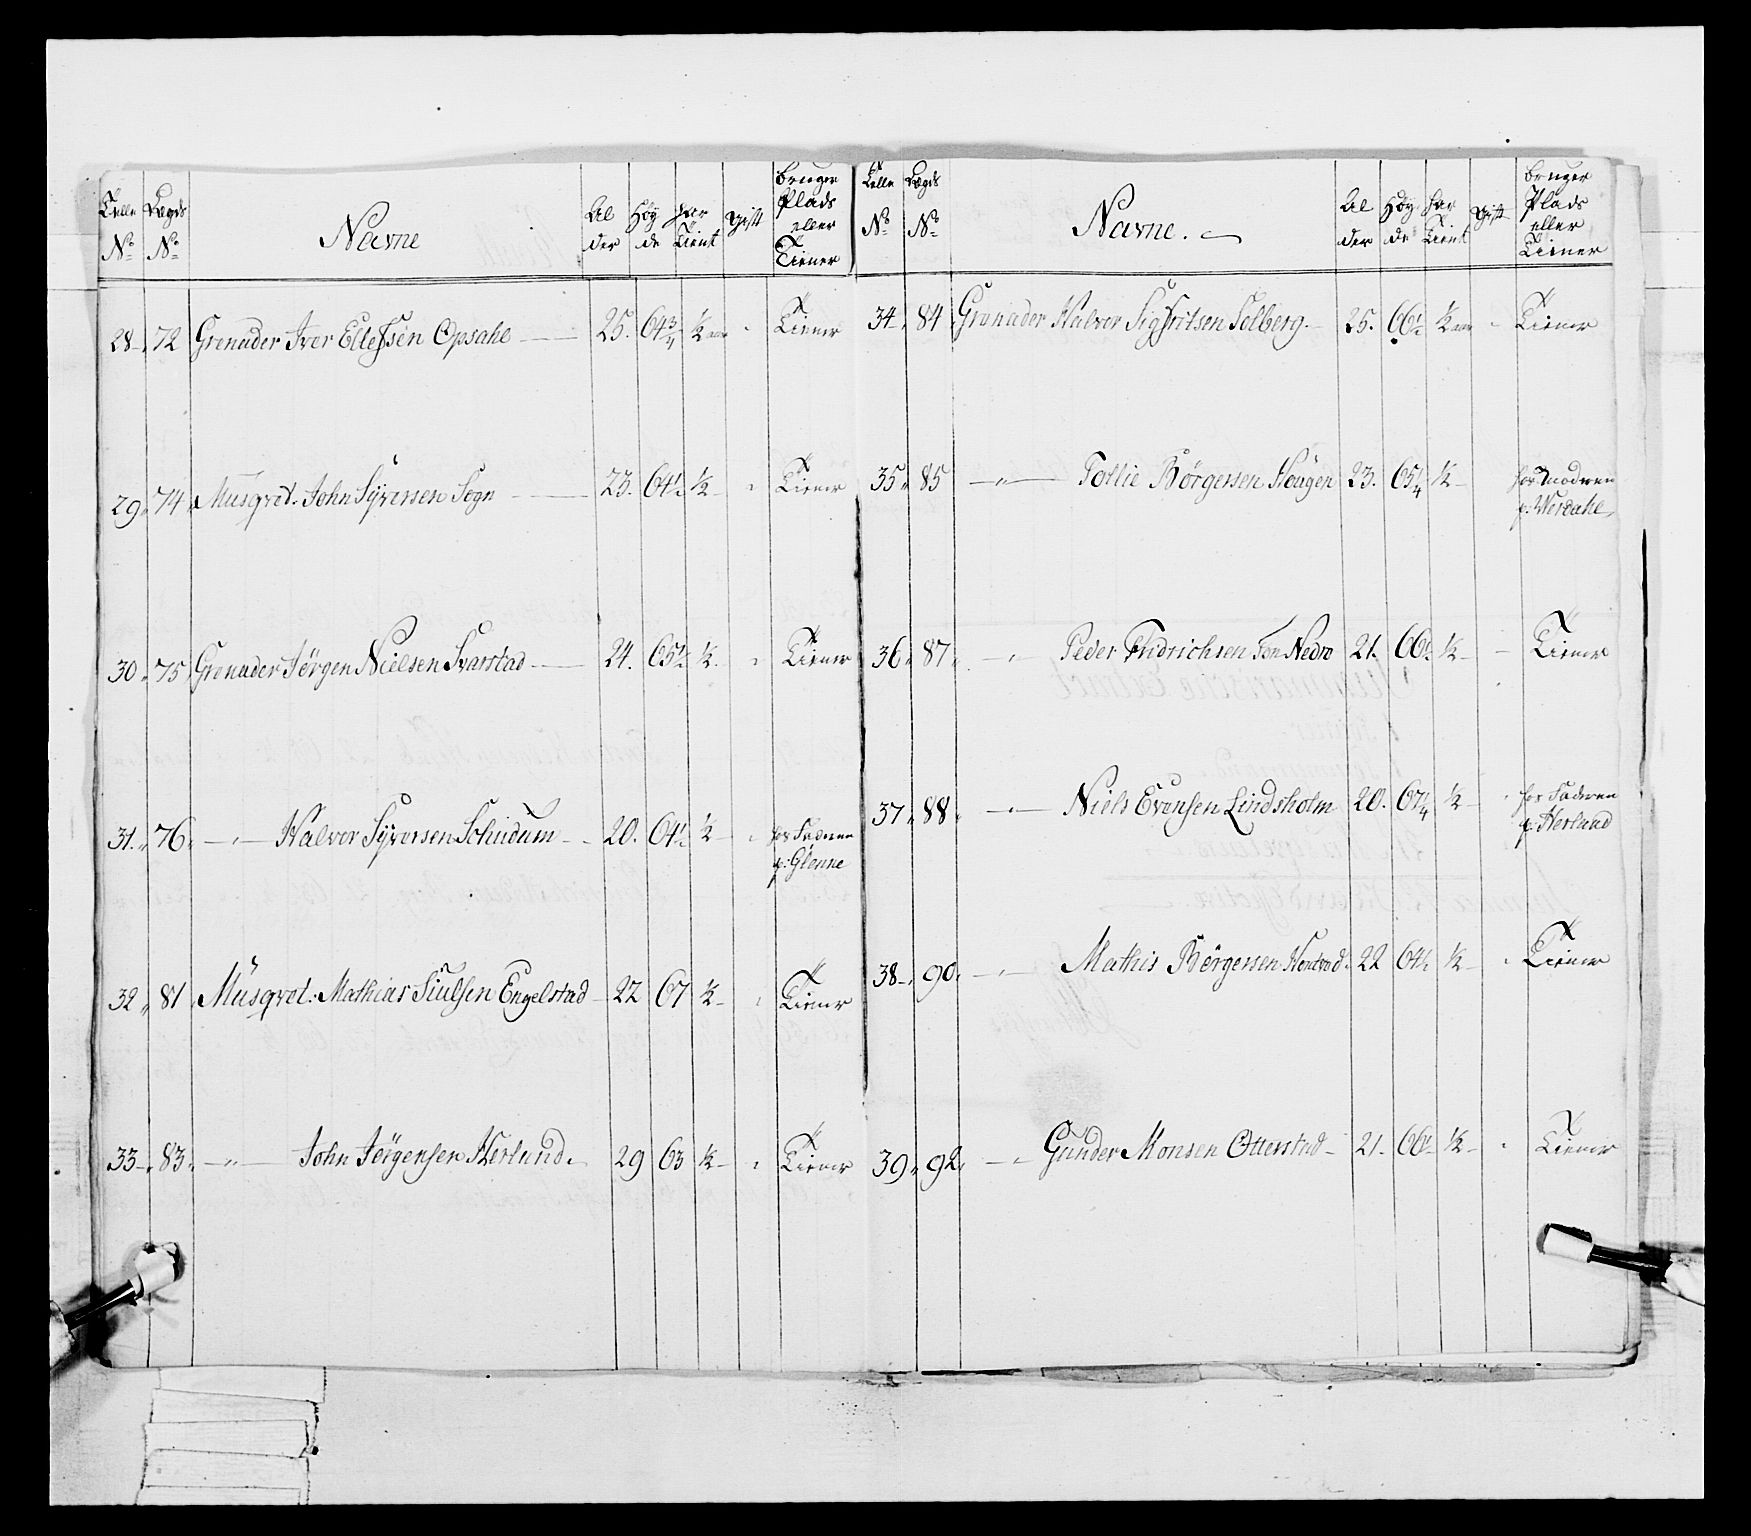 Telle No Lægds No Navne Alder Høyde har Tient Gift bruger Plads eller Tiener
28 72 Grenader Iver Ellefsen Opsahl 25. 64 3/4 1/2 aar " Tiener
29 74 Musqvet. John Syversen Sogn 23. 64 1/2 1/2 " Tiener
30 75 Grenader Jörgen Nielsen Svarstad 24. 65 1/2 1/2 " Tiener
31. 76 — " — Halvor Syversen 20. 64 1/2 1/2 " hos Faderen
p: Glenne
32 81 Musqvet. Mathias Siulsen Engelstad 22 67 1/2 " Tiener
33 83 — " — John Jörgensen Herlund 29 63 1/2 " Tiener
Telle No Lægds No Navne. Alder Høyde har Tient Gift bruger Plads eller Tiener
34 84 Grenader Halvor Sigfritsen Solberg 25. 66 1/2 1/2 aar " Tiener
35 85 — " — Tollie Börgersen Hougen 23. 65 1/4 1/2 hos Moderen
36 87 — " — Peder Fridrichsen Ton Nedro 21. 66 1/2 1/2 — Tiener
37 88 — " — Niels Evensen Lindsholm 20. 67 1/4 1/2 " hos Faderen
p: Herlund
38 90 — " — Mathis Börgersen 22 64 1/2 1/2 " Tiener
39 92 — " — Gunder Monsen Otterstad 21. 66 1/2 1/2 " Tiener